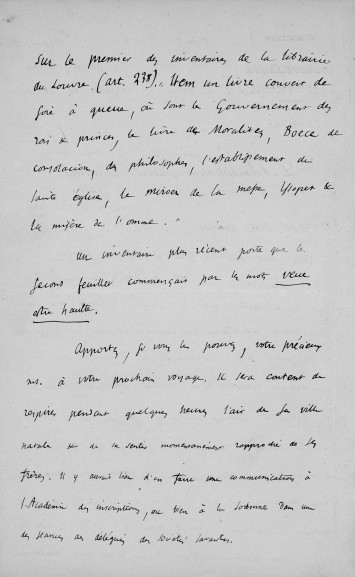 sur le premier des inventaires de la librairie
du Louvre (art. 238). « Item un livre couvert de
soie à queue, où sont le Gouvernement des
rois & princes, le livre des Moralitez, Boece de
consolacion, des philosophes, l'establissement de
sainte église, le miroer de la messe, Ysopet &
la misère de l'omme. »
Un inventaire plus récent porte que le
second feuillet commençait par les mots veue
estre haulte.
Apportez, si vous le pouvez, votre précieux
ms. à votre prochain voyage. Il sera content de
respirer pendant quelques heures l'air de sa ville
natale & de se sentir momentanément rapproché de ses
frères. Il y aurait lieu d'en faire une communication à
l'Académie des inscriptions, ou bien à la Sorbonne dans une
des séances des délégués des Sociétés savantes.